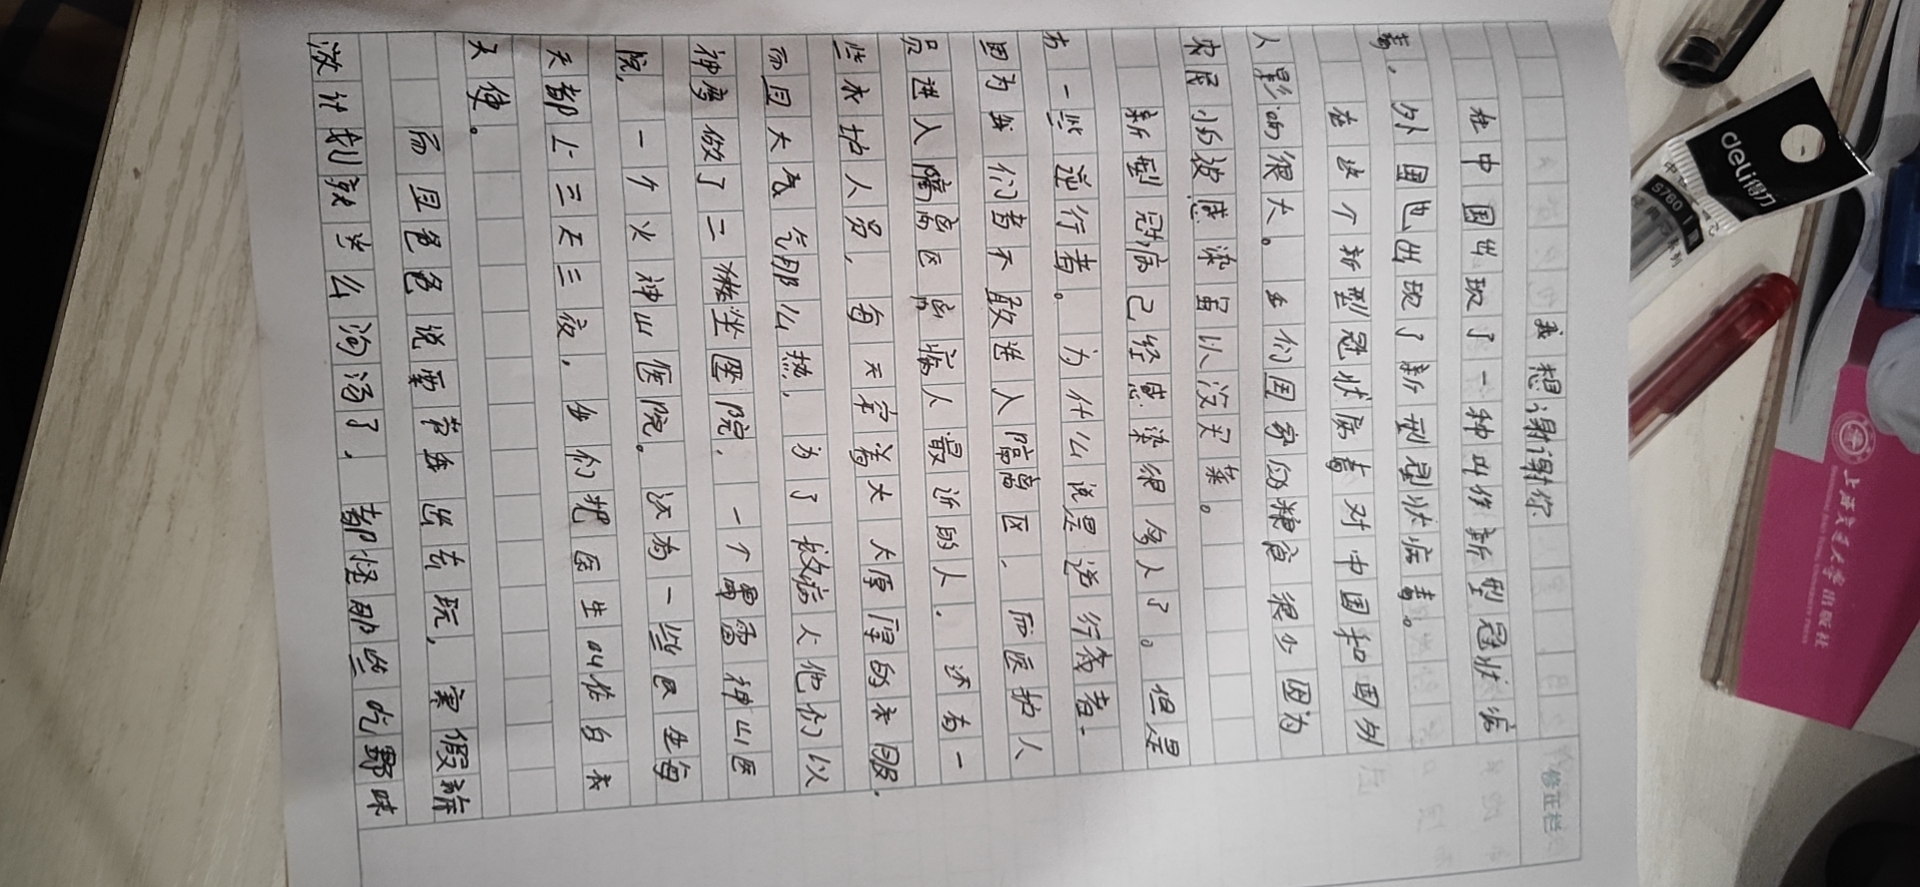 我想谢谢你
在中国出现了一种叫作新型冠状病
毒，外国也出现了新型冠状病毒。
在这个新型冠状病毒对中国和国外
人影响很大。我们国家的粮食很少因为
农民的被感染虽以没买菜。
新型冠病已经感染很多人了。但是
有一些逆行者。为什么说是逆行者，
因为我们者不敢进入隔离区，而医护人
员进入隔离区离病人最近的人，还有一
些衣护人员，每天穿着大大厚厚的衣服，
而且天气那么热，为了救病人他们以
神 做了二 医院，一个雷神山医
院，一个火神山医院。还有一些医生每
天都上三天三夜，我们把医生叫作白衣
天使。
而且色色说要节 出去玩，寒假
放计划 怎么泡汤了，都怪那些吃野味
修正栏
deli得力
S760
上海交通大学出版社